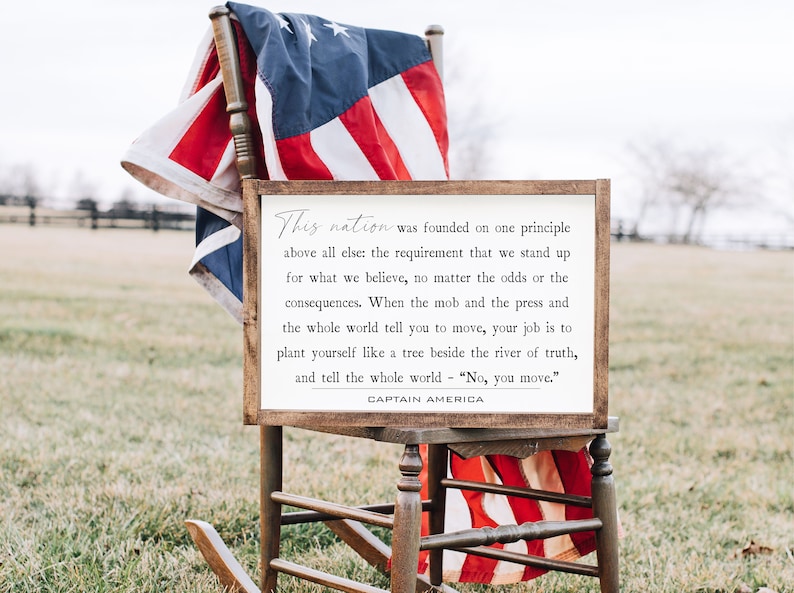 This nation was founded on one principle
above all else: the requirement that we stand up
for what we believe, no matter the odds or the
consequences. When the mob and the press and
the whole world tell you to move, your job is to
plant yourself like a tree beside the river of truth,
and tell the whole world - “No, you move.”
CAPTAIN AMERICA